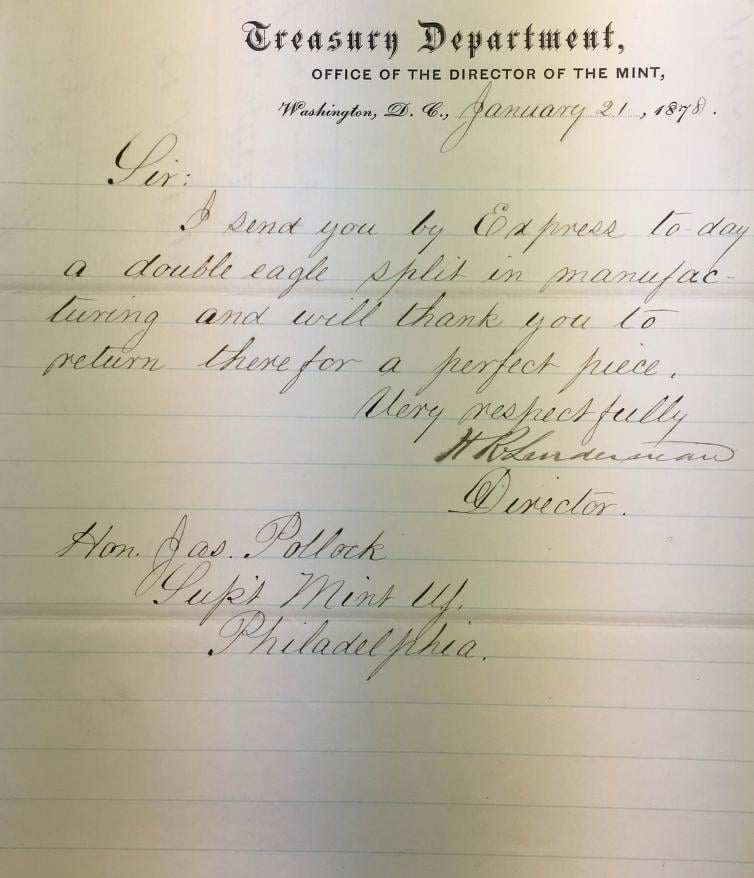 Treasury Department,
OFFICE OF THE DIRECTOR OF THE MINT,
Washington, D. C., January 21, 1878.
Sir:
I send you by Express to-day
a double eagle split in manufac-
turing and will thank you to
return therefor a perfect piece.
Very respectfully
H R Linderman
Director.
Hon. Jas. Pollock
Supt Mint US.
Philadelphia.